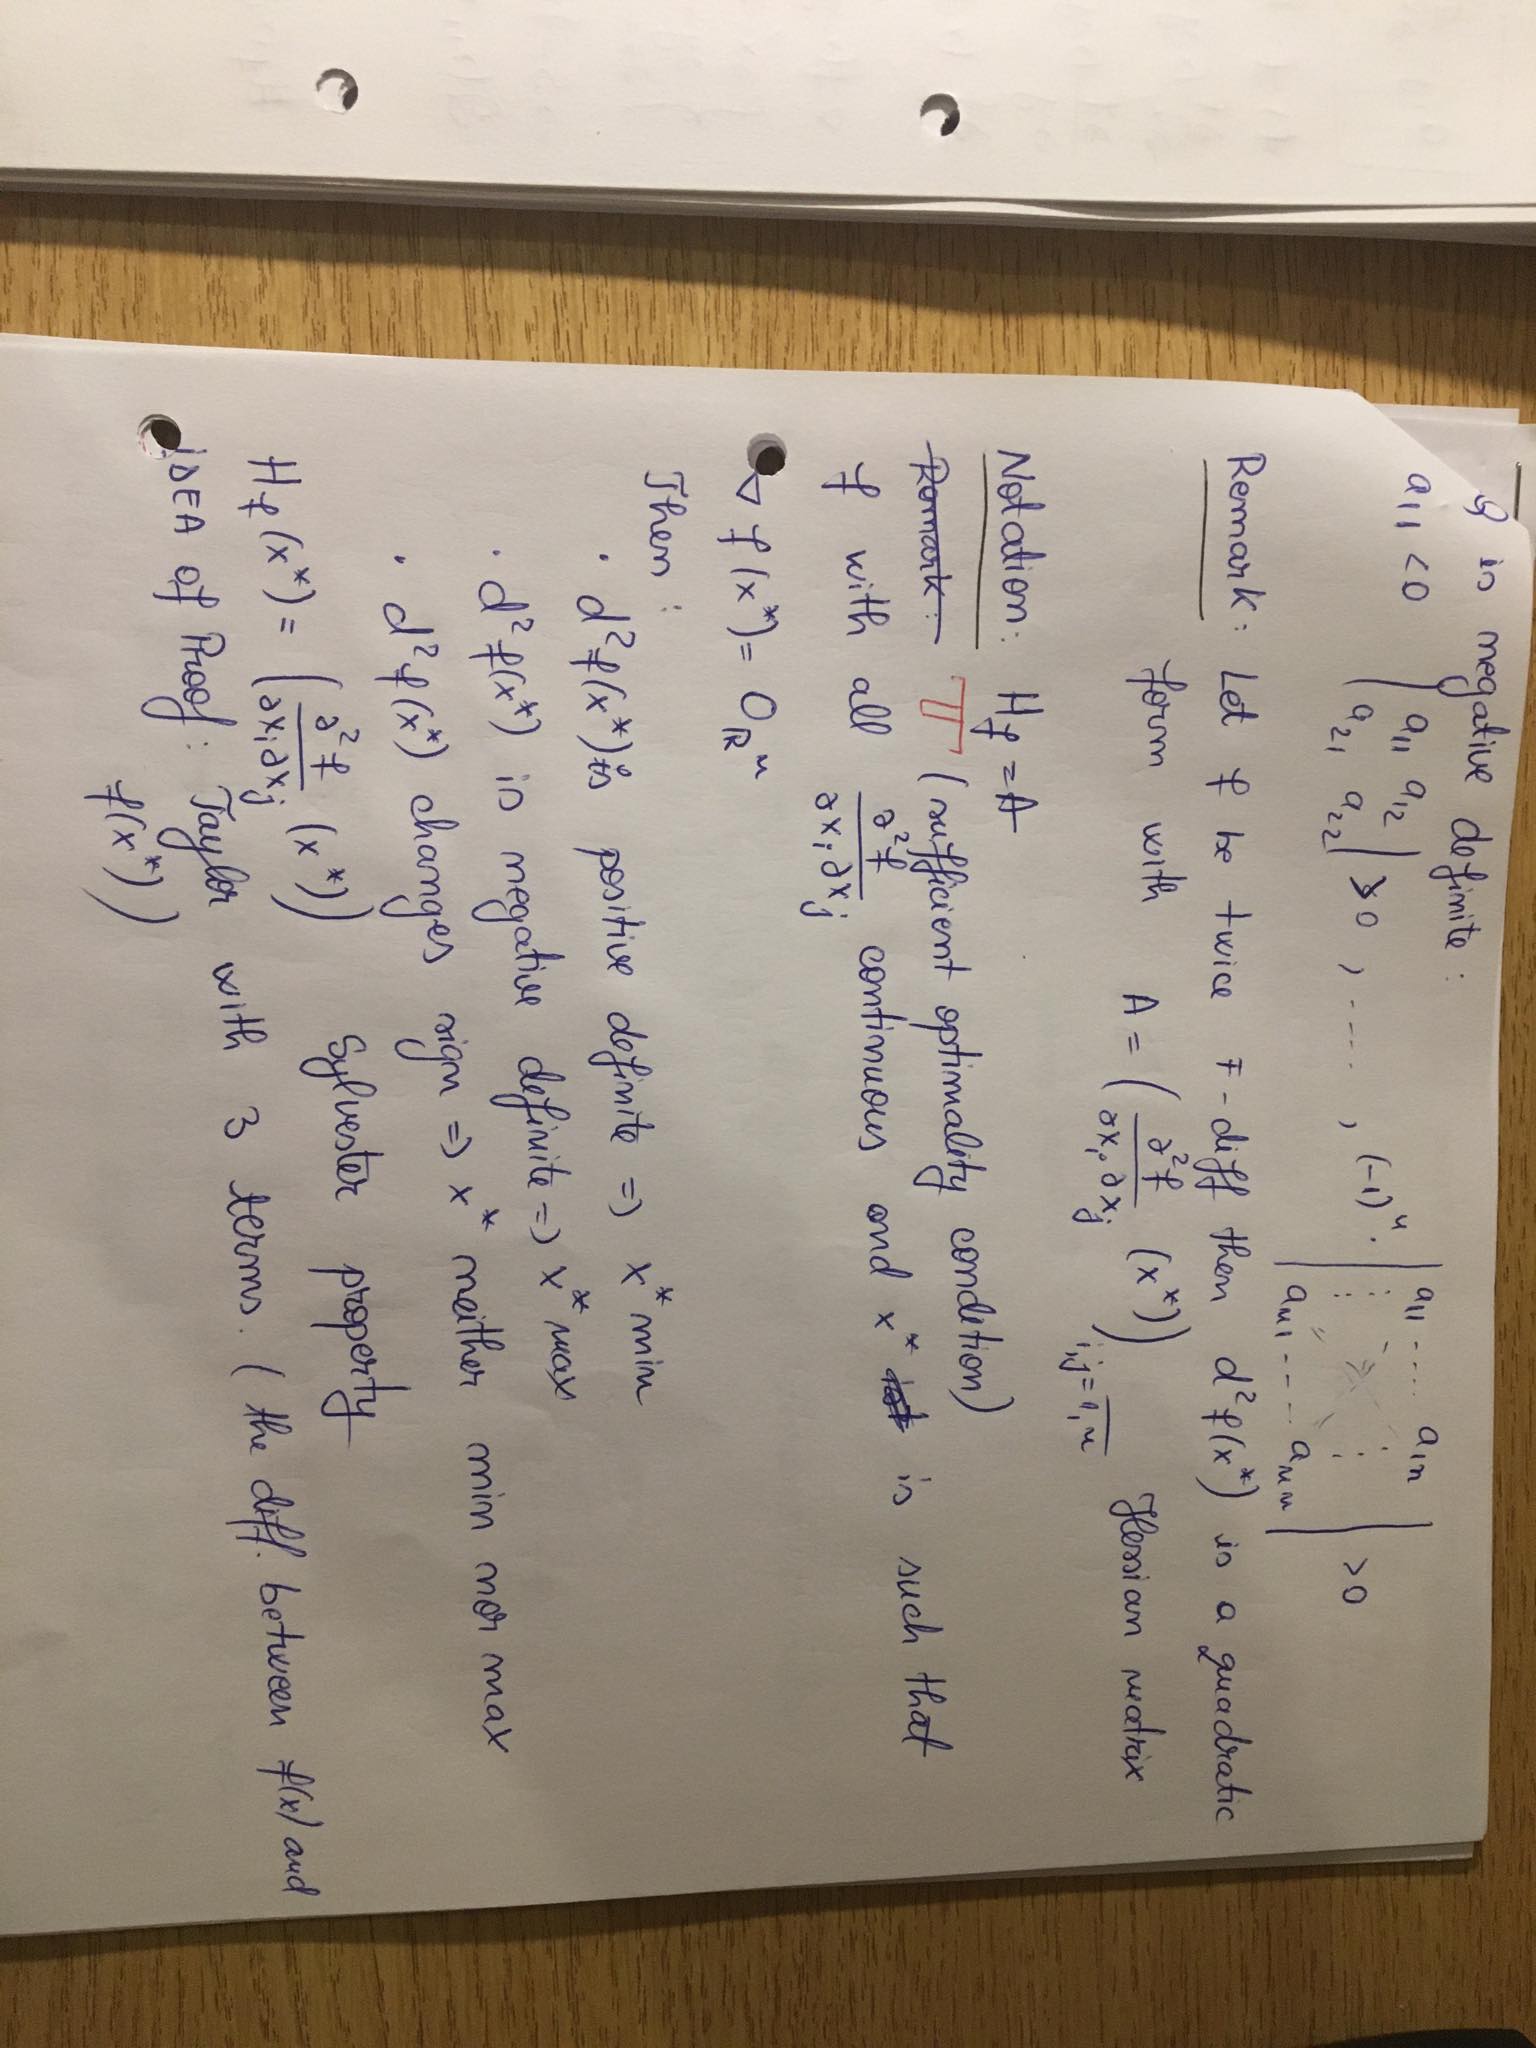 Q is negative definite:
a₁₁ <0 | a₁₁ a₁₂ ; a₂₁ a₂₂ | >0 , ..... , (-1)ⁿ · | a₁₁ .... a₁ₙ ; aₙ₁ .... aₙₙ | >0
Remark: Let f be twice F-diff then d²f(x*) is a quadratic
form with A = ( ∂²f/∂xᵢ∂xⱼ (x*) ) i,j=1,n Hessian matrix
Notation: H_f = A
Remark: T (sufficient optimality condition)
f with all ∂²f/∂xᵢ∂xⱼ continuous and x* is such that
∇f(x*)= O_ℝⁿ
Then:
· d²f(x*) is positive definite => x* min
· d²f(x*) is negative definite => x* max
· d²f(x*) changes sign => x* neither min nor max
H_f(x*) = ( ∂²f/∂xᵢ∂xⱼ (x*) ) Sylvester property
iDEA of Proof: Taylor with 3 terms. ( the diff. between f(x) and
f(x*) )